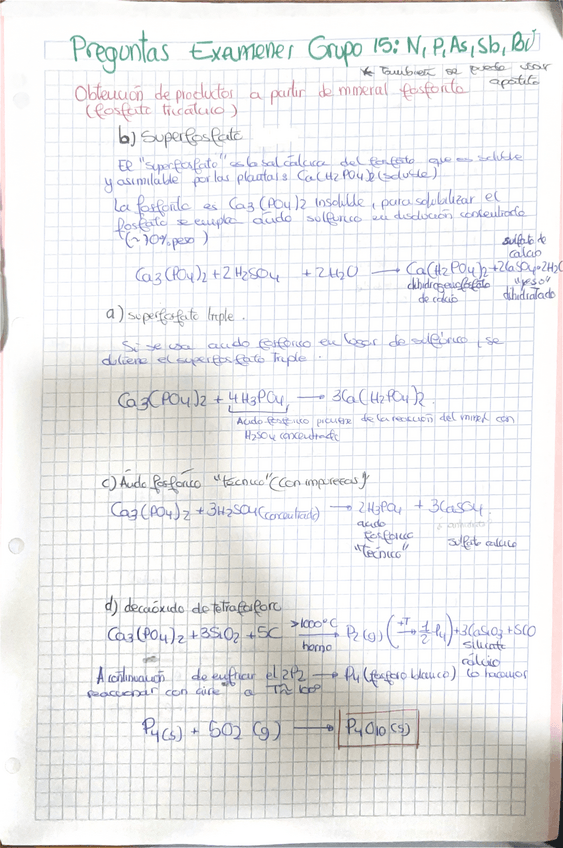 Preguntas Examenes Grupo 15: N, P, As, Sb, Bi
* También se puede usar apatito
Obtención de productos a partir de mineral fosforita
(fosfato tricálcico)
b) Superfosfato
El "superfosfato" es la sal cálcica del fosfato que es soluble
y asimilable por las plantas Ca(H2PO4)2 (soluble)
La fosforita es Ca3(PO4)2 insoluble, para solubilizar el
fosfato se emplea ácido sulfúrico en disolución concentrada
(~70% peso)
Ca3(PO4)2 + 2H2SO4 + 2H2O → Ca(H2PO4)2 + 2CaSO4·2H2O
sulfato de calcio
dihidrogenofosfato de calcio
"yeso" dihidratado
a) superfosfato triple.
Si se usa ácido fosfórico en lugar de sulfúrico, se
obtiene el superfosfato triple.
Ca3(PO4)2 + 4H3PO4 → 3Ca(H2PO4)2
Ácido fosfórico de la reacción del mineral con
H2SO4 concentrado
c) Ácido fosfórico "técnico" (con impurezas)
Ca3(PO4)2 + 3H2SO4 (concentrado) → 2H3PO4 + 3CaSO4
ácido fosfórico "técnico"
sulfato cálcico
d) decaóxido de tetrafósforo
Ca3(PO4)2 + 3SiO2 + 5C >1000°C horno → P2(g) (↓T → 1/2 P4) + 3CaSiO3 + 5CO
silicato cálcico
A continuación de enfriar el 2P2 → P4 (fósforo blanco) lo hacemos
reaccionar con aire a T≈100°
P4(s) + 5O2(g) → P4O10(s)